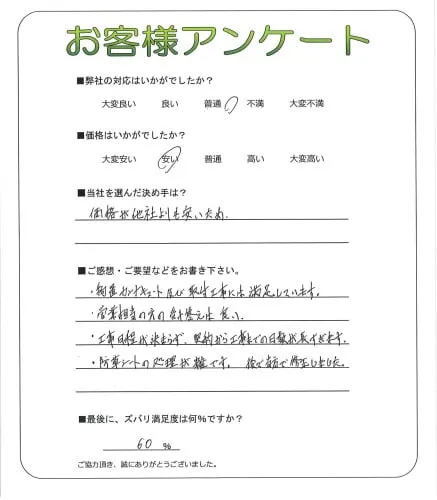 お客様アンケート
■弊社の対応はいかがでしたか？
大変良い 良い 普通 不満 大変不満
■価格はいかがでしたか？
大変安い 安い 普通 高い 大変高い
■当社を選んだ決め手は？
価格が他社よりも安いため.
■ご感想・ご要望などをお書き下さい。
エコキュート及び取付工事には満足しています。
・営業担当の方の は良い.
・工事日程が決まらず、契約から工事までの日数が長すぎます.
・防草シートの処理が雑です。 後で自分で修正しました。
■最後に、ズバリ満足度は何%ですか？
60 %
ご協力頂き、誠にありがとうございました。